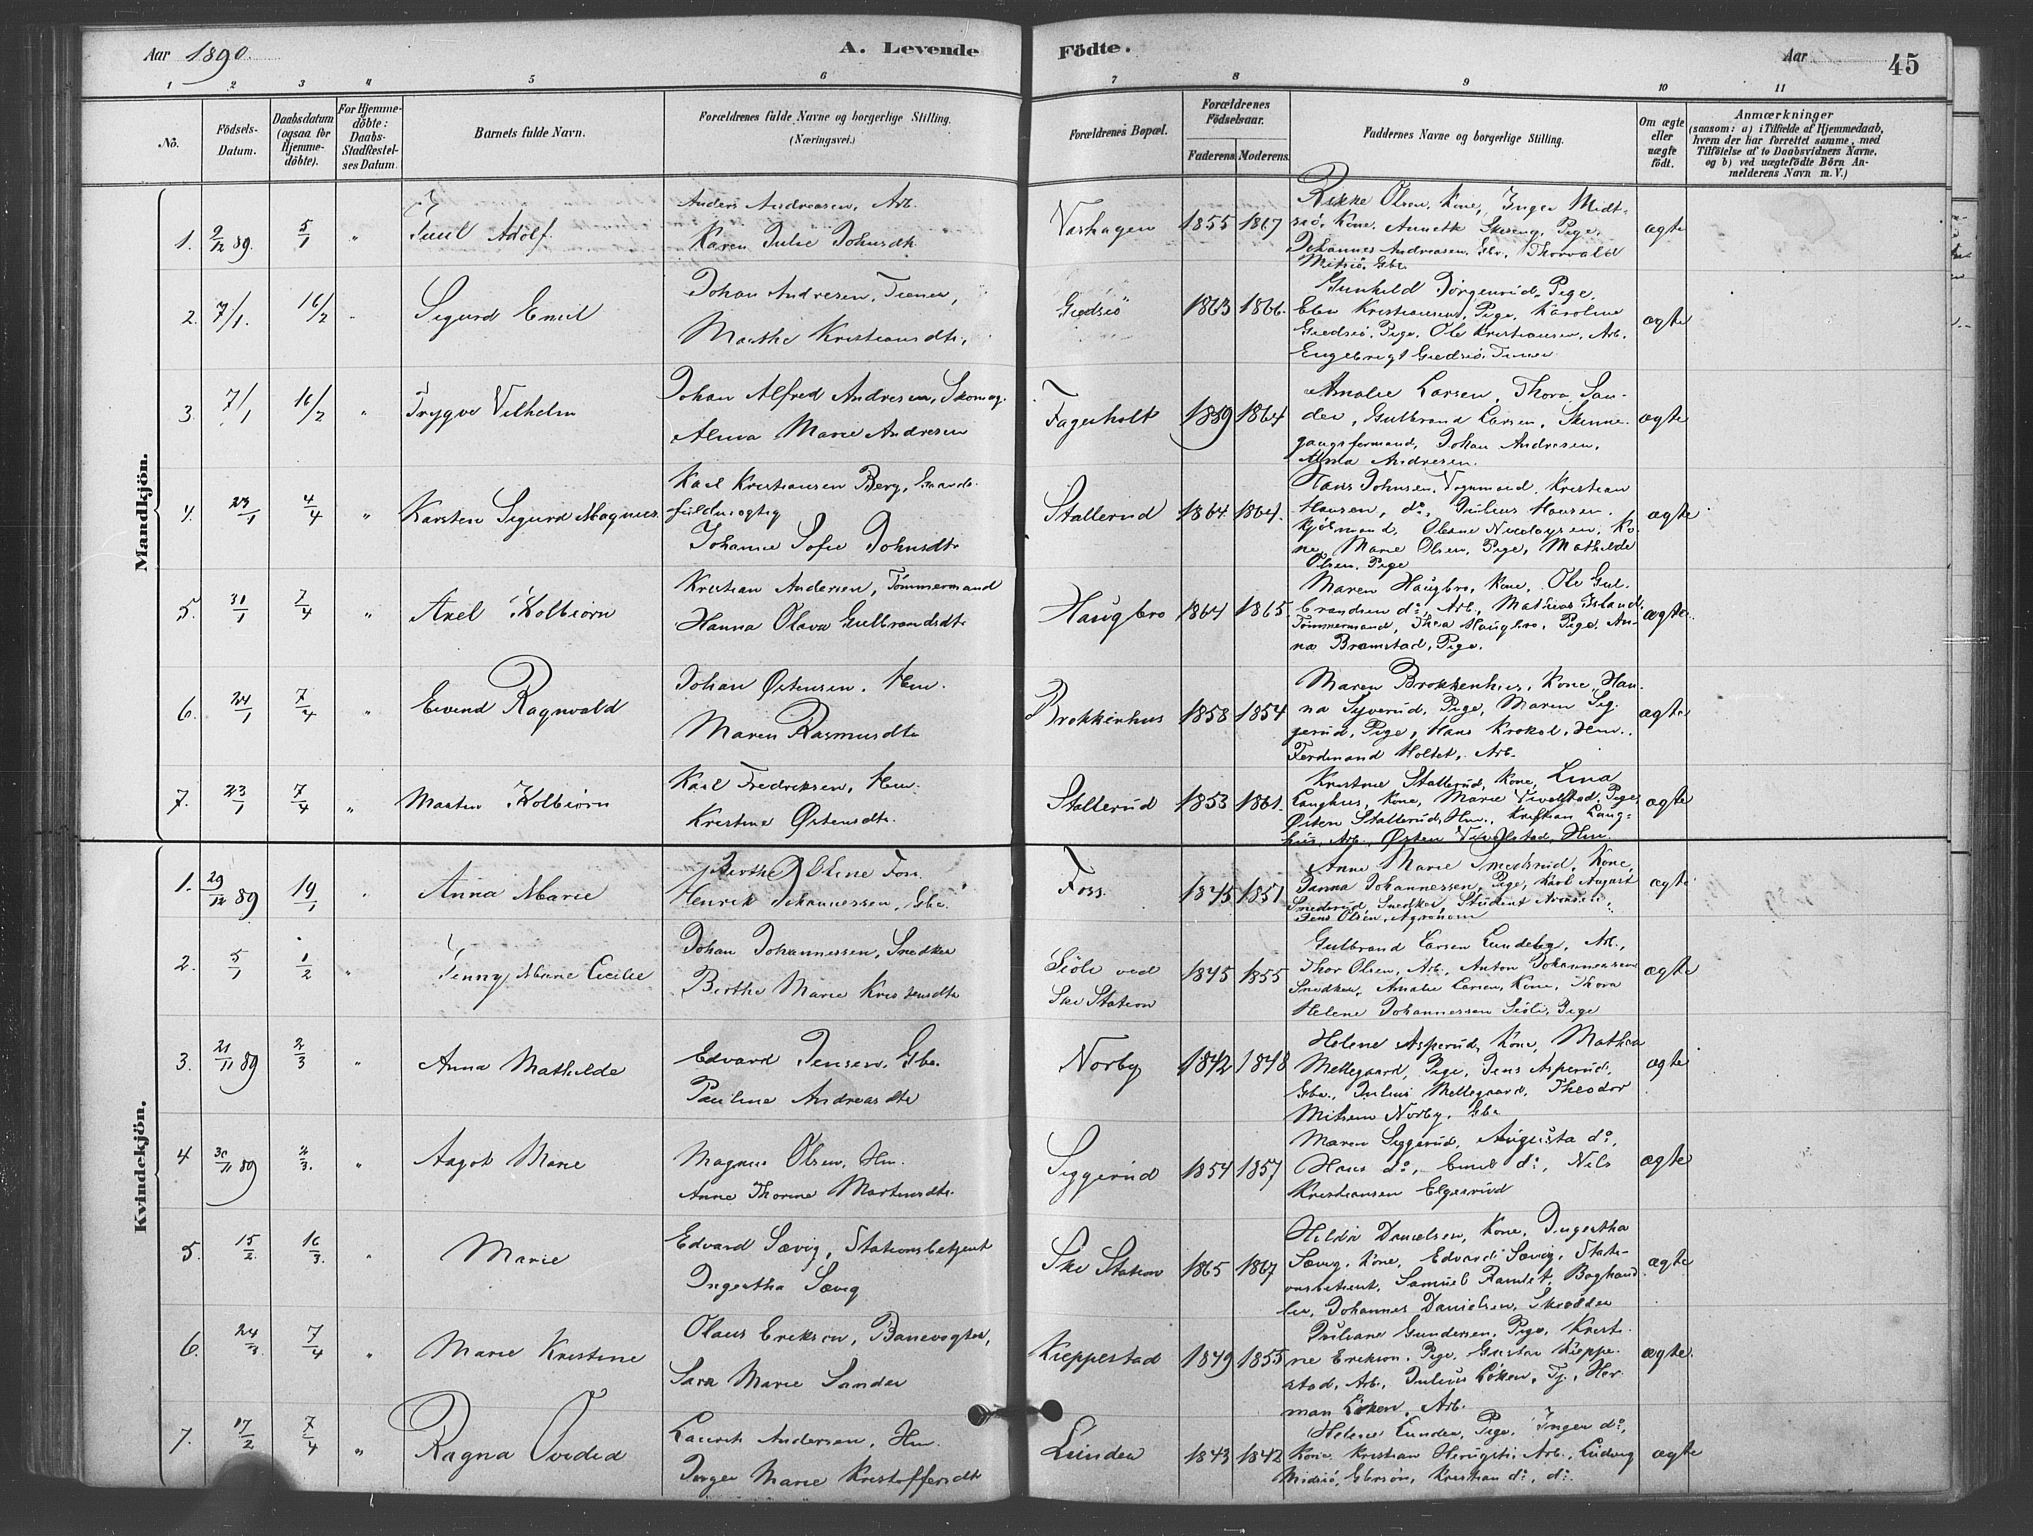 Aar 1890.
A. Levende Födte.
Aar
45
1 2 3 4 5 6 7 8 9 10 11
No.
Födsels-Datum.
Daabsdatum (ogsaa for Hjemme-döbte).
For Hjemme-döbte: Daabs-Stadfæstel-ses Datum.
Barnets fulde Navn.
Forældrenes fulde Navne og borgerlige Stilling. (Næringsvei.)
Forældrenes Bopæl.
Forældrenes Födselsaar.
Faderens. Moderens.
Faddernes Navne og borgerlige Stilling.
Om ægte eller uægte födt.
Anmærkninger
(saasom: a) i Tilfælde af Hjemmedaab,
hvem der har forrettet samme, med
Tilföielse af to Daabsvidners Navne.
og b) ved uægtefödte Börn An-
melderens Navn m. V.)
Mandkjön.
1. 9/12 89. 5/1 " Juul Adolf
Anders Andreasen, Arb.
Karen Julie Johnsdt.
Vashagen 1855 1867
Rikke Olsen, Kone, Inger Midt-
siö, Kone, Annette Skiseng, Pige,
Johannes Andreasen, Gbr., Thorvald
Mitsiö, Gbr.
ægte
2. 7/1. 16/2 " Sigurd Emil
Johan Andresen, Tiener,
Marthe Kristiansdtr.
Giedsiö 1863 1866.
Gunhild Jörgenrud, Pige,
Elen Kristiansen, Pige, Karoline
Giedsiö, Pige, Ole Kristiansen, Arb.
Engebrigt Giedsiö, Tiener
ægte
3. 7/1 16/2 " Trygve Vilhelm
Johan Alfred Andresen, Skomag.
Alma Marie Andresen
Fagerholt 1859 1864
Amalie Larsen, Thora San-
der, Gulbrand Larsen, Skinne-
gangsformand, Johan Andresen,
Alma Andresen.
ægte
4. 23/1 4/4 " Karsten Sigurd Magnus.
Karl Kristiansen Berg, Gaards-
fuldmægtig
Johanne Sofie Johnsdtr
Stallerud 1864 1864.
Hans Johnsen, Vognmand, Kristian
Hansen, do, Julius Hansen,
Kjöbmand, Olene Nicolaysen, Ko-
ne, Marie Olsen, Pige, Mathilde
Olsen, Pige
ægte
5. 31/1 7/4 " Axel Kolbiörn
Kristian Andersen, Tömmermand
Hanna Olava Gulbrandsdtr
Haugbro 1864 1865.
Maren Haugbro, Kone, Ole Gul-
brandsen do, Arb., Mathias
Tömmermand, Thea Haugbro, Pige, An-
na Bramstad, Pige.
ægte.
6. 24/1 7/4 " Eivind Ragnvald
Johan Østensen, Hm.
Maren Rasmusdtr
Brokkenhus 1858 1854
Maren Brokkenhus, Kone, Han-
na Syverud, Pige, Maren Sig-
gerud, Pige, Hans Krokol, Hm.,
Ferdinand Holtet, Arb.
ægte
7. 23/1 7/4 " Martin Kolbiörn
Karl Fredriksen, Hm.
Kristine Østensdtr.
Stallerud 1853 1861.
Kristine Stallerud, Kone, Lina
Langhus, Kone, Marie Vevelstad, Pige,
Østen Stallerud, Hm., Kristian Lang-
hus, Arb., Østen Vevelstad, Hm.
ægte
Kvindekjön.
1. 29/12 89 19/1 " Anna Marie
Berthe Oline Foss
Henrik Johannessen, Gbr.
Foss. 1845 1851
Anne Marie Smedsrud, Kone,
Johannessen, Pige, Karl August
Snedsrud, Snedker, Student Aronsen,
Jens Olsen, Agronom
ægte
2. 5/1 1/2 " Jenny Marie Cecilie
Johan Johannessen, Snedker
Berthe Marie Kristensdtr
Siöli ved
Ski Station 1845 1855
Gulbrand Larsen Lundeby, Arb.,
Thor Olsen, Arb., Anton Johannessen
Snedker, Amalie Larsen, Kone, Thora
Helene Johannessen Siöli, Pige
ægte
3. 21/11 89 2/3 " Anna Mathilde
Edvard Jensen, Gbr.
Pauline Andreasdtr
Norby 1842 1848
Helene Asperud, Kone, Mathea
Mellegaard, Pige, Jens Asperud,
Gbr., Julius Mellegaard, Theodor
Norby, Gbr
ægte
4 30/11 89 2/3. " Aagot Marie
Magnus Olsen, Hm.
Anne Thorine Martinsdtr.
Siggerud 1854 1857
Maren Siggerud, Augusta do,
Hans do, Emil do, Nils
Kristiansen Elgesrud
ægte
5. 15/2. 16/3. " Marie
Edvard Sævig, Stationsbetjent
Ingertha Sævig
Ski Station 1865 1867
Hilda Danielsen, Kone, Ingertha
Sævig, Kone, Edvard Sævig, Stati-
onsbetient, Samuel Ramlet, Boghand-
ler, Johannes Danielsen, Skrædder
ægte
6. 24/ 7/4 " Marie Kristine
Olaus Erikson, Banevogter,
Sara Marie Sander
Kieppestad 1849 1855
Juliane Gundersen, Pige, Kristi-
ne Erikson, Pige, Gustav Kieppe-
stad, Arb., Julius Löken, Tj., Her-
man Löken, Arb.
ægte.
7. 17/2 7/4 " Ragna Ovidia
Laurits Andersen, Hm.
Inger Marie Kristoffersdt
Lunden 1843 1842
Helene Lunden, Pige, Inger do,
Kone, Kristian, Arb., Ludvig
Midsiö, Gbrsön, Kristian do, do.
ægte